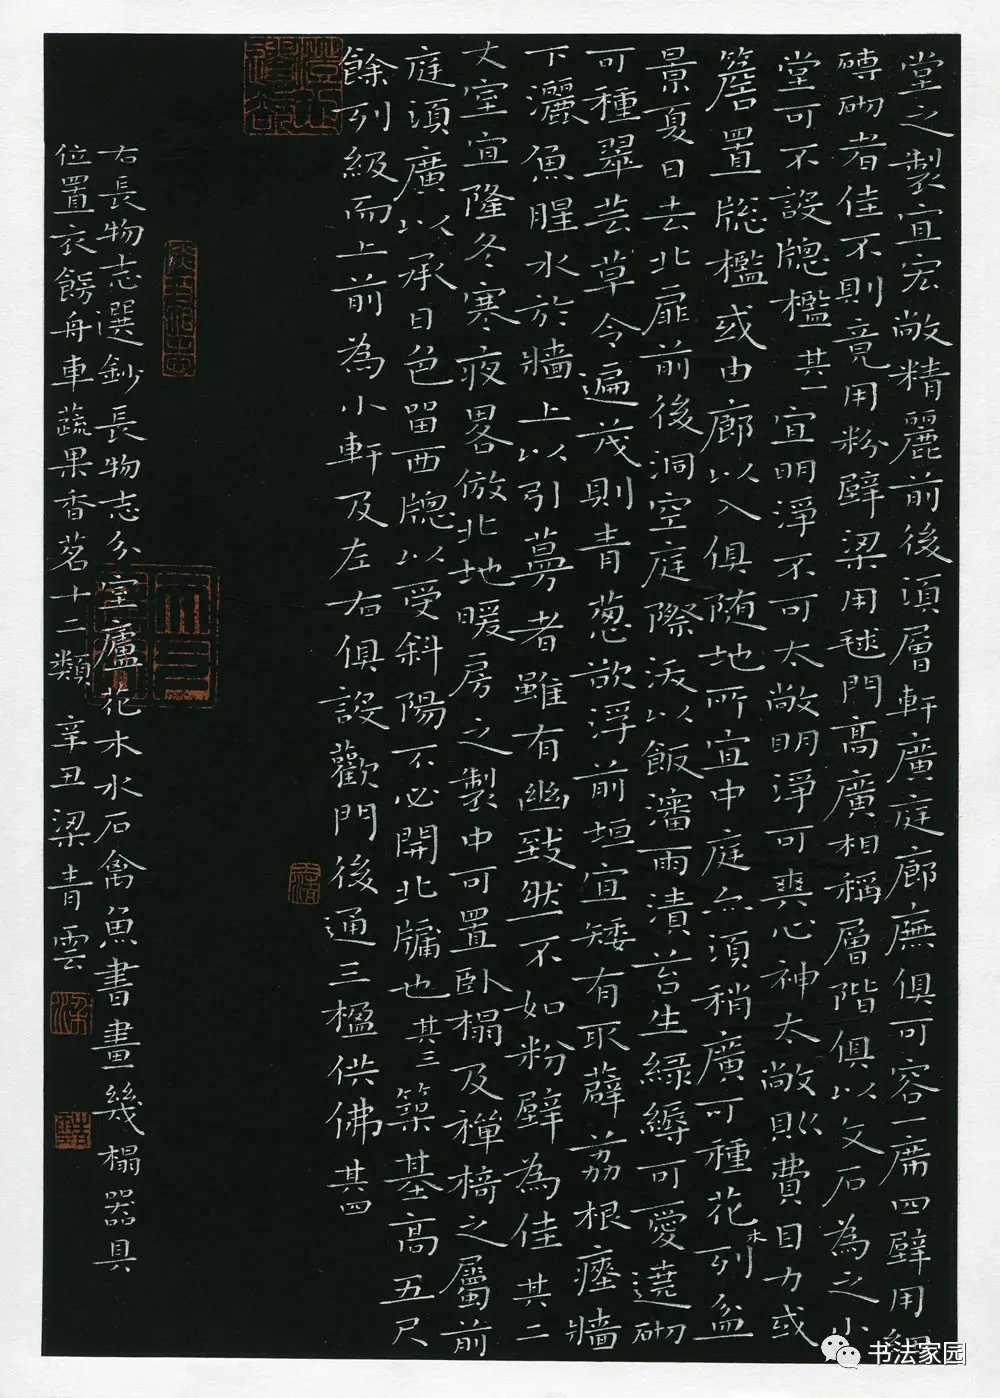 堂之製宜宏敞精麗前後須層軒廣庭廊廡俱可容一席四壁用細
磚砌者佳不則竟用粉壁梁用毬門高廣相稱層階俱以文石為之小
堂可不設牕檻其一宜明淨不可太敞明淨可爽心神太敞則費目力或
簷置牕檻或由廊以入俱随地所宜中庭亦須稍廣可種花木列盆
景夏日去北扉前後洞空庭際沃以飯瀋雨漬苔生緑縟可愛遶砌
可種翠芸草令遍茂則青葱欲浮前垣宜矮有取薜荔根瘞牆
下灑魚腥水於牆上以引蔓者雖有幽致然不如粉壁為佳其二
丈室宜隆冬寒夜畧倣北地暖房之製中可置卧榻及禪椅之屬前
庭須廣以承日色留西牕以受斜陽不必開北牖也其三築基高五尺
餘列級而上前為小軒及左右俱設歡門後通三楹供佛其四
右長物志選鈔長物志分室廬花木水石禽魚書畫幾榻器具
位置衣餙舟車蔬果香茗十二類辛丑梁青雲
梁
书法家园